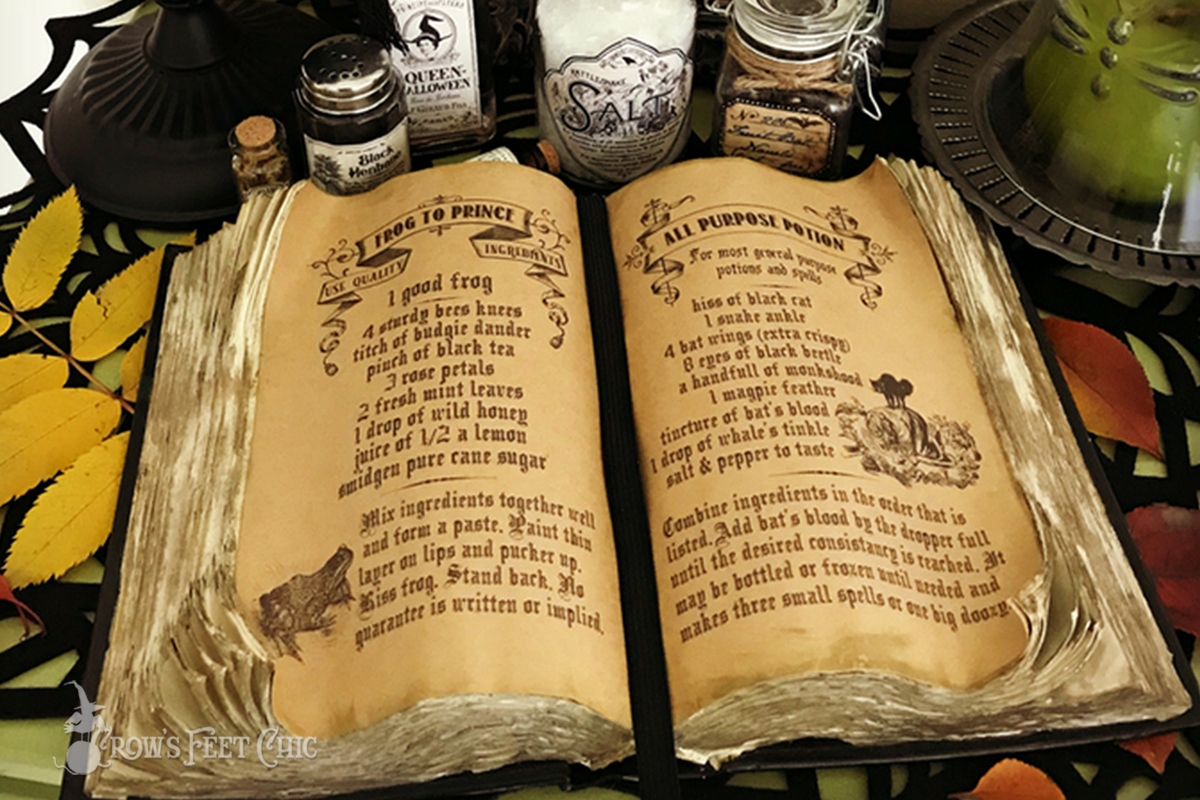 QUEEN-
HALLOWEEN
Black
Henbane
RATTLESNAKE
SALT
No
FROG TO PRINCE
USE QUALITY
INGREDIENTS
1 good frog
4 sturdy bees knees
titch of budgie dander
pinch of black tea
3 rose petals
2 fresh mint leaves
1 drop of wild honey
juice of 1/2 a lemon
smidgen pure cane sugar
Mix ingredients together well
and form a paste. Paint thin
layer on lips and pucker up.
Kiss frog. Stand back. No
guarantee is written or implied.
ALL PURPOSE POTION
For most general purpose
potions and spells
hiss of black cat
1 snake ankle
4 bat wings (extra crispy)
8 eyes of black beetle
a handfull of monkshood
1 magpie feather
tincture of bat's blood
1 drop of whale's tinkle
salt & pepper to taste
Combine ingredients in the order that is
listed. Add bat's blood by the dropper full
until the desired consistancy is reached. It
may be bottled or frozen until needed and
makes three small spells or one big doozy.
CROW'S FEET CHIC